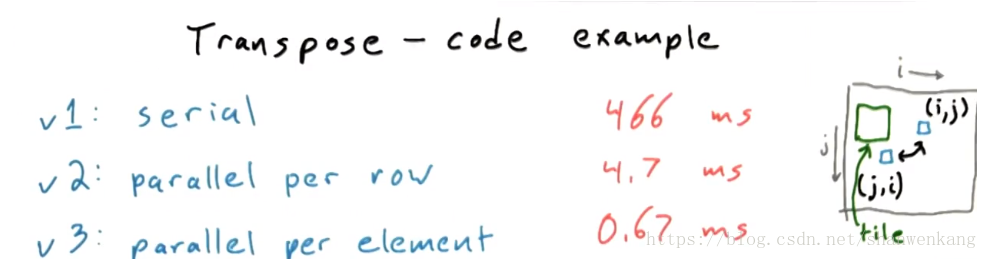 Transpose - code example
i →
v1: serial 466 ms
(i,j)
j
v2: parallel per row 4.7 ms
(j,i)
v3: parallel per element 0.67 ms
tile
https://blog.csdn.net/shanwenkang